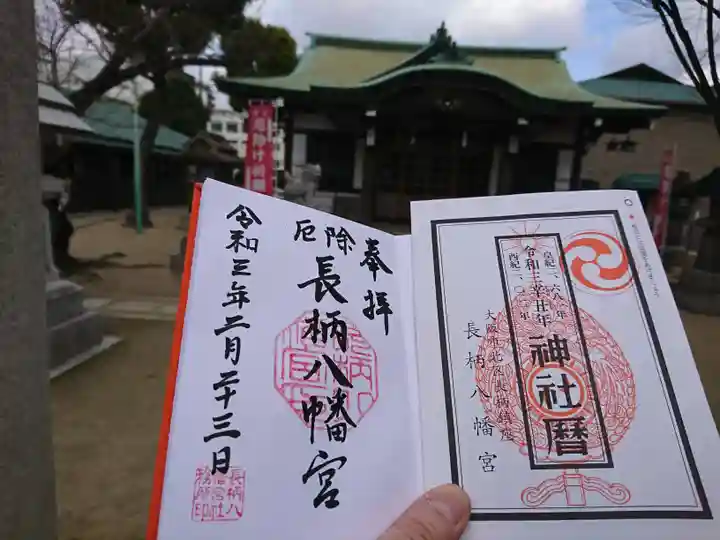 奉拝
厄除
長柄八幡宮
令和三年二月二十三日
皇紀二、六八一年
令和三辛丑年
西紀二、〇二一年
神社暦
大阪市北区長柄鎮座
長柄八幡宮